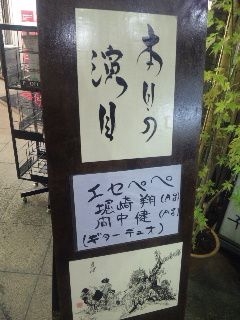 本日の
演目
エセペペ
堀崎 翔(Aギ)
岡中 健(Aギ)
(ギターデュオ)